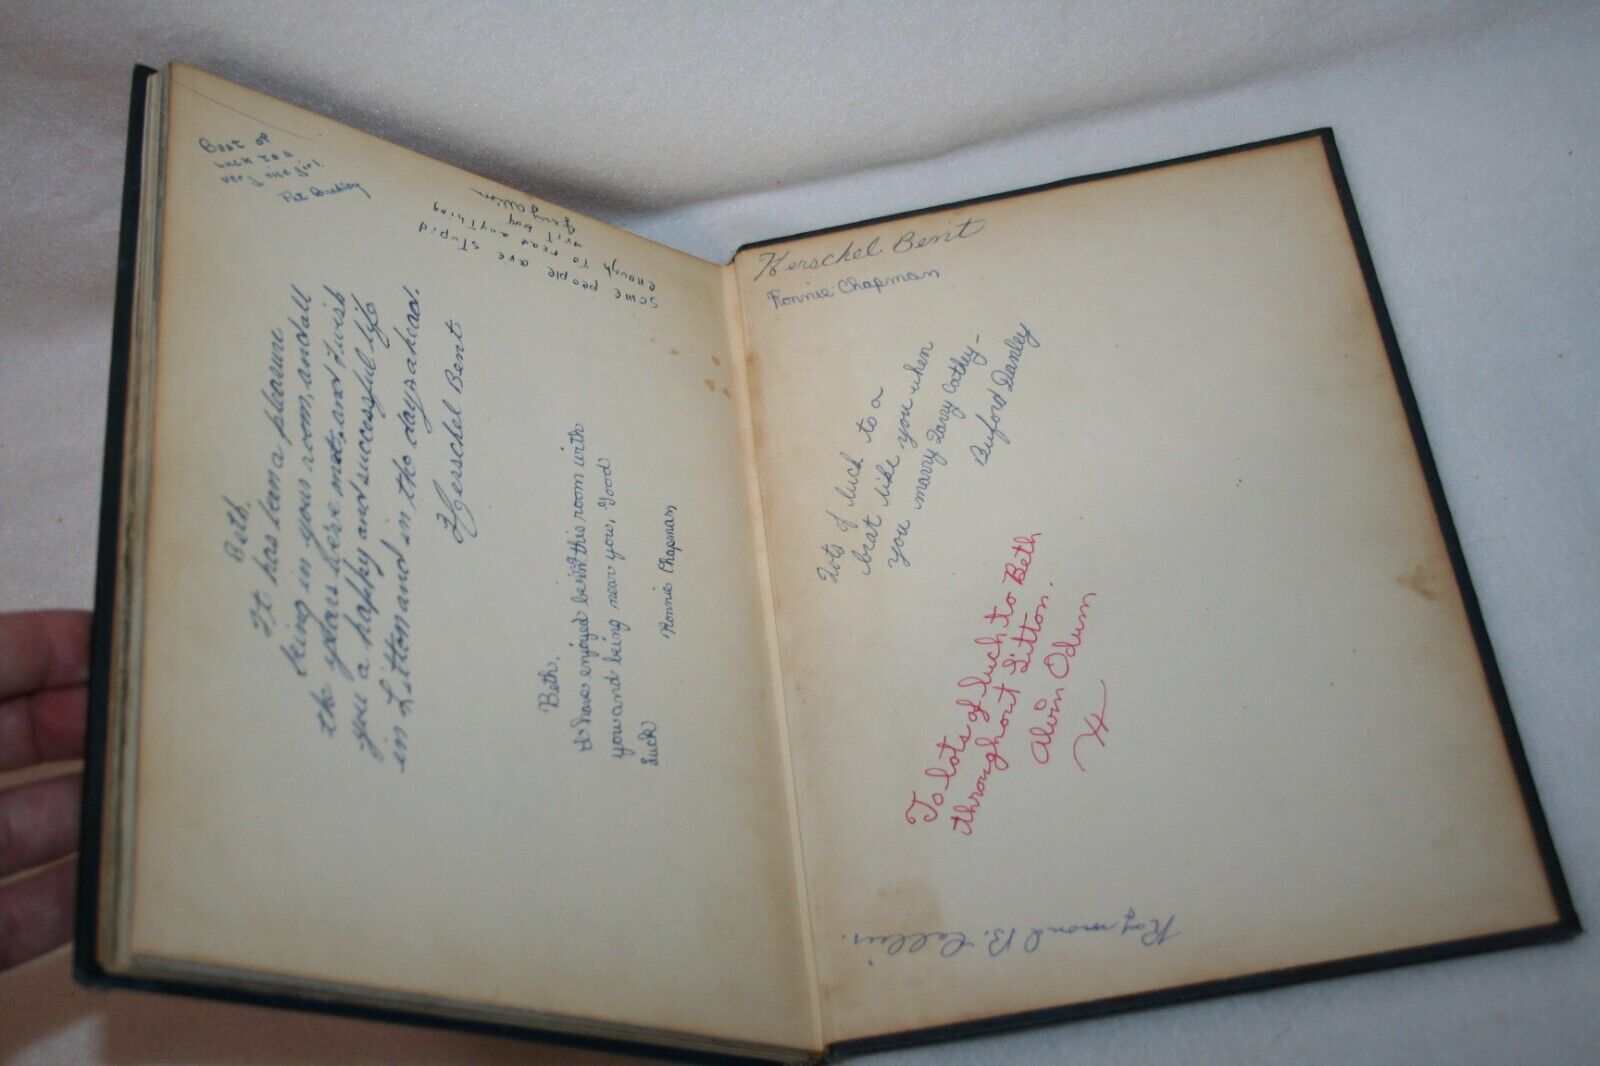 Best of
Pat
some people are stupid
enough to read anything
writ buy
Jerry Allison
Beth,
It has been a pleasure
being in your room, and all
the years here met, and I wish
you a happy and successful life
in Litton and in the days ahead.
Herschel Bent
Beth,
I have enjoyed being this room with
you and being near you, Good
Luck
Ronnie Chapman
Herschel Bent
Ronnie Chapman
Lots of luck to a
brat like you when
you marry Larry Cathey-
Buford Danley
To lots of luck to Beth
throughout Litton.
Alvin Odum
Raymond B.